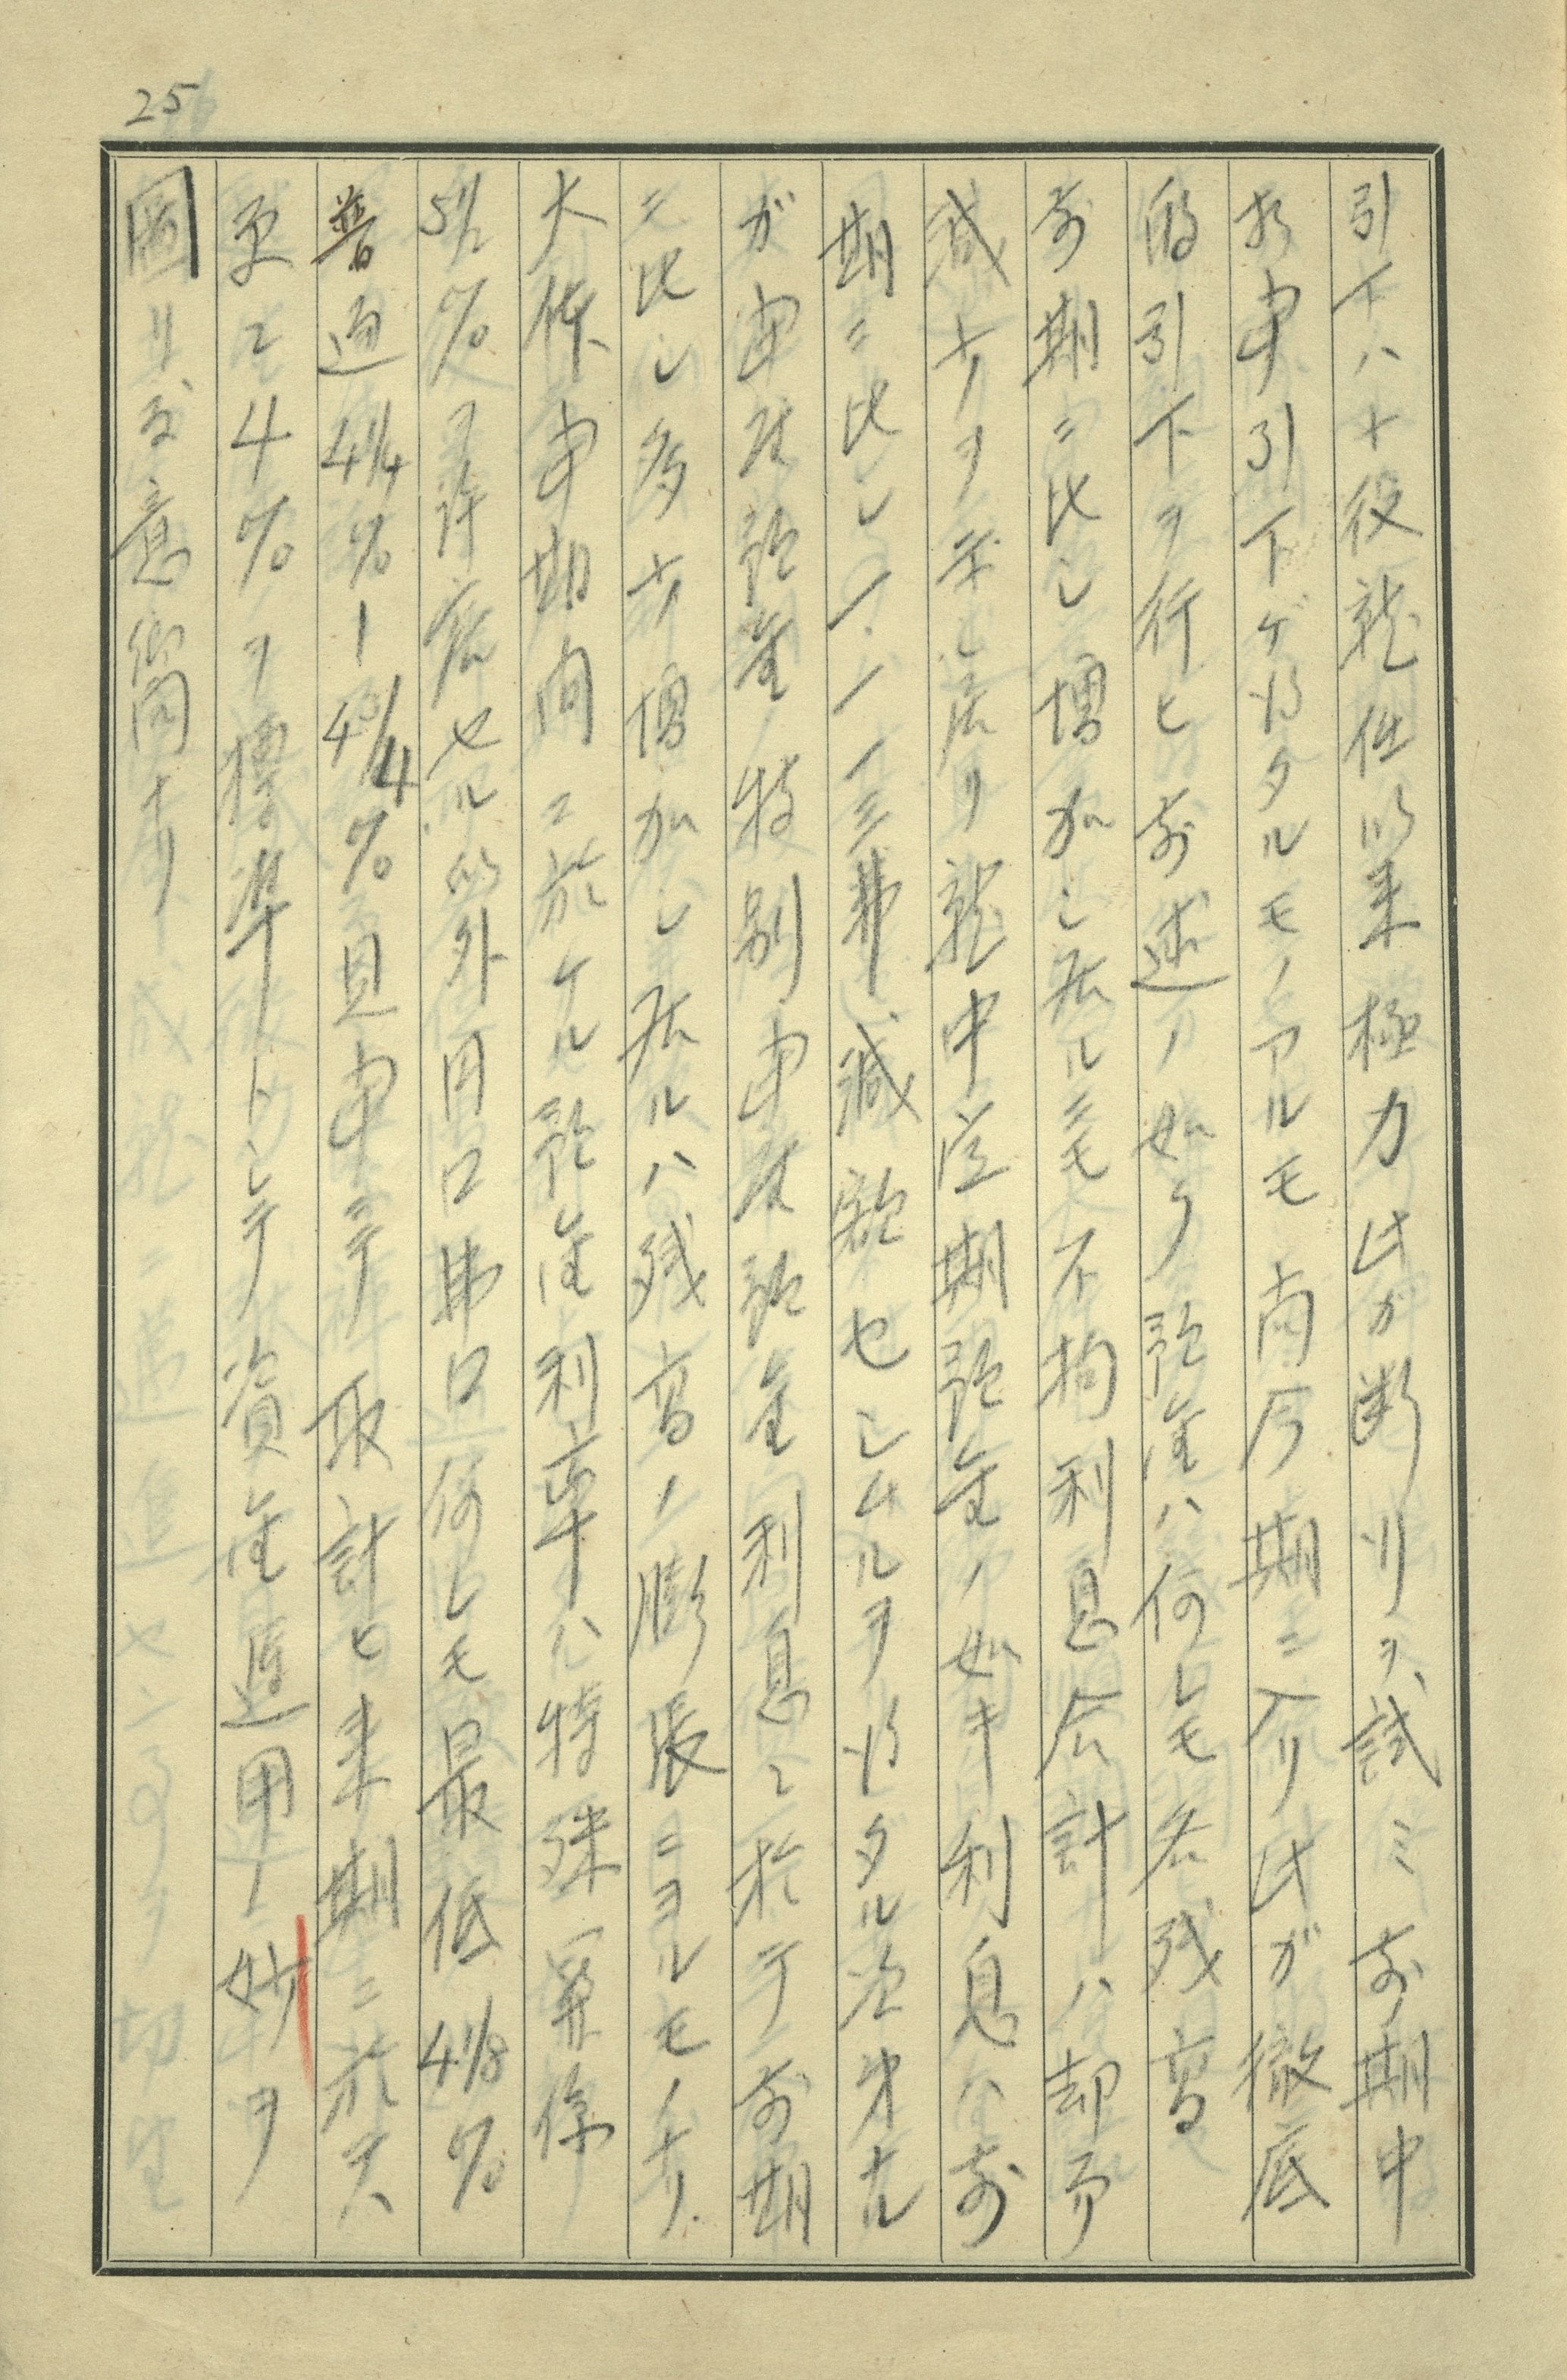 25
引下ハ小役就任以来極力此ガ断行ヲ試ミ前期中
相申引下ゲ得タルモノアルモ尚今期ニ入リ此ガ徹底
的引下ヲ行ヒ前述ノ如ク預金ハ何レモ各残高
前期ニ比シ増加シ居ルニモ不拘利息合計ハ却而
減少ヲ示シ居リ就中定期預金ノ如キ利息ハ前
期ニ比シ一一、一三弗減額セシムルヲ得タル次第ナル
ガ当座預金、特別当座預金利息ニ於テ前期
ニ比シ多少増加シ居ルハ残高ノ膨張ニヨルモノナリ、
大体当期間ニ於ケル預金利率ハ特殊関係
5½%ヲ許容セル以外円口弗口何レモ最低4⅛%
普通4¼%ー4¾%見当ニテ取計ヒ来期ニ於テハ
更ニ4%ヲ標準トシテ資金運用ノ妙ヲ
図リ度意向ナリ